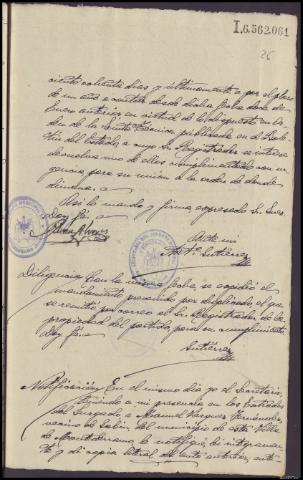 I.6.562.061
26
ciento ochenta dias y últimamente por el plazo
de un año a contar desde dicha fecha doce de
Enero anterior en virtud de lo dispuesto en Or
den de la Junta Técnica publicada en el Bole
tin del Estado, a cuyo Sr. Registrador se interesa
devuelva uno de ellos cumplimentado con ur
gencia para su unión a la orden de donde
dimana.
Así lo mandó y firma expresado Sr. Juez
Doy fé
Ante mi
Gutierrez
Diligencia. Con la misma fecha, se expidió el
mandamiento prevenido por duplicado, el que
se remitió por correo al Sr. Registrador de la
propiedad del partido para su cumplimiento
Doy fé
Gutiérrez
Notificación. En el mismo dia yo el Secretario,
teniendo a mi presencia en los Estrados
del Juzgado a Manuel Vazquez Fernández
vecino de del municipio de esta Villa
de le notifiqué, leí integramen
te y di copia literal del auto anterior, ente